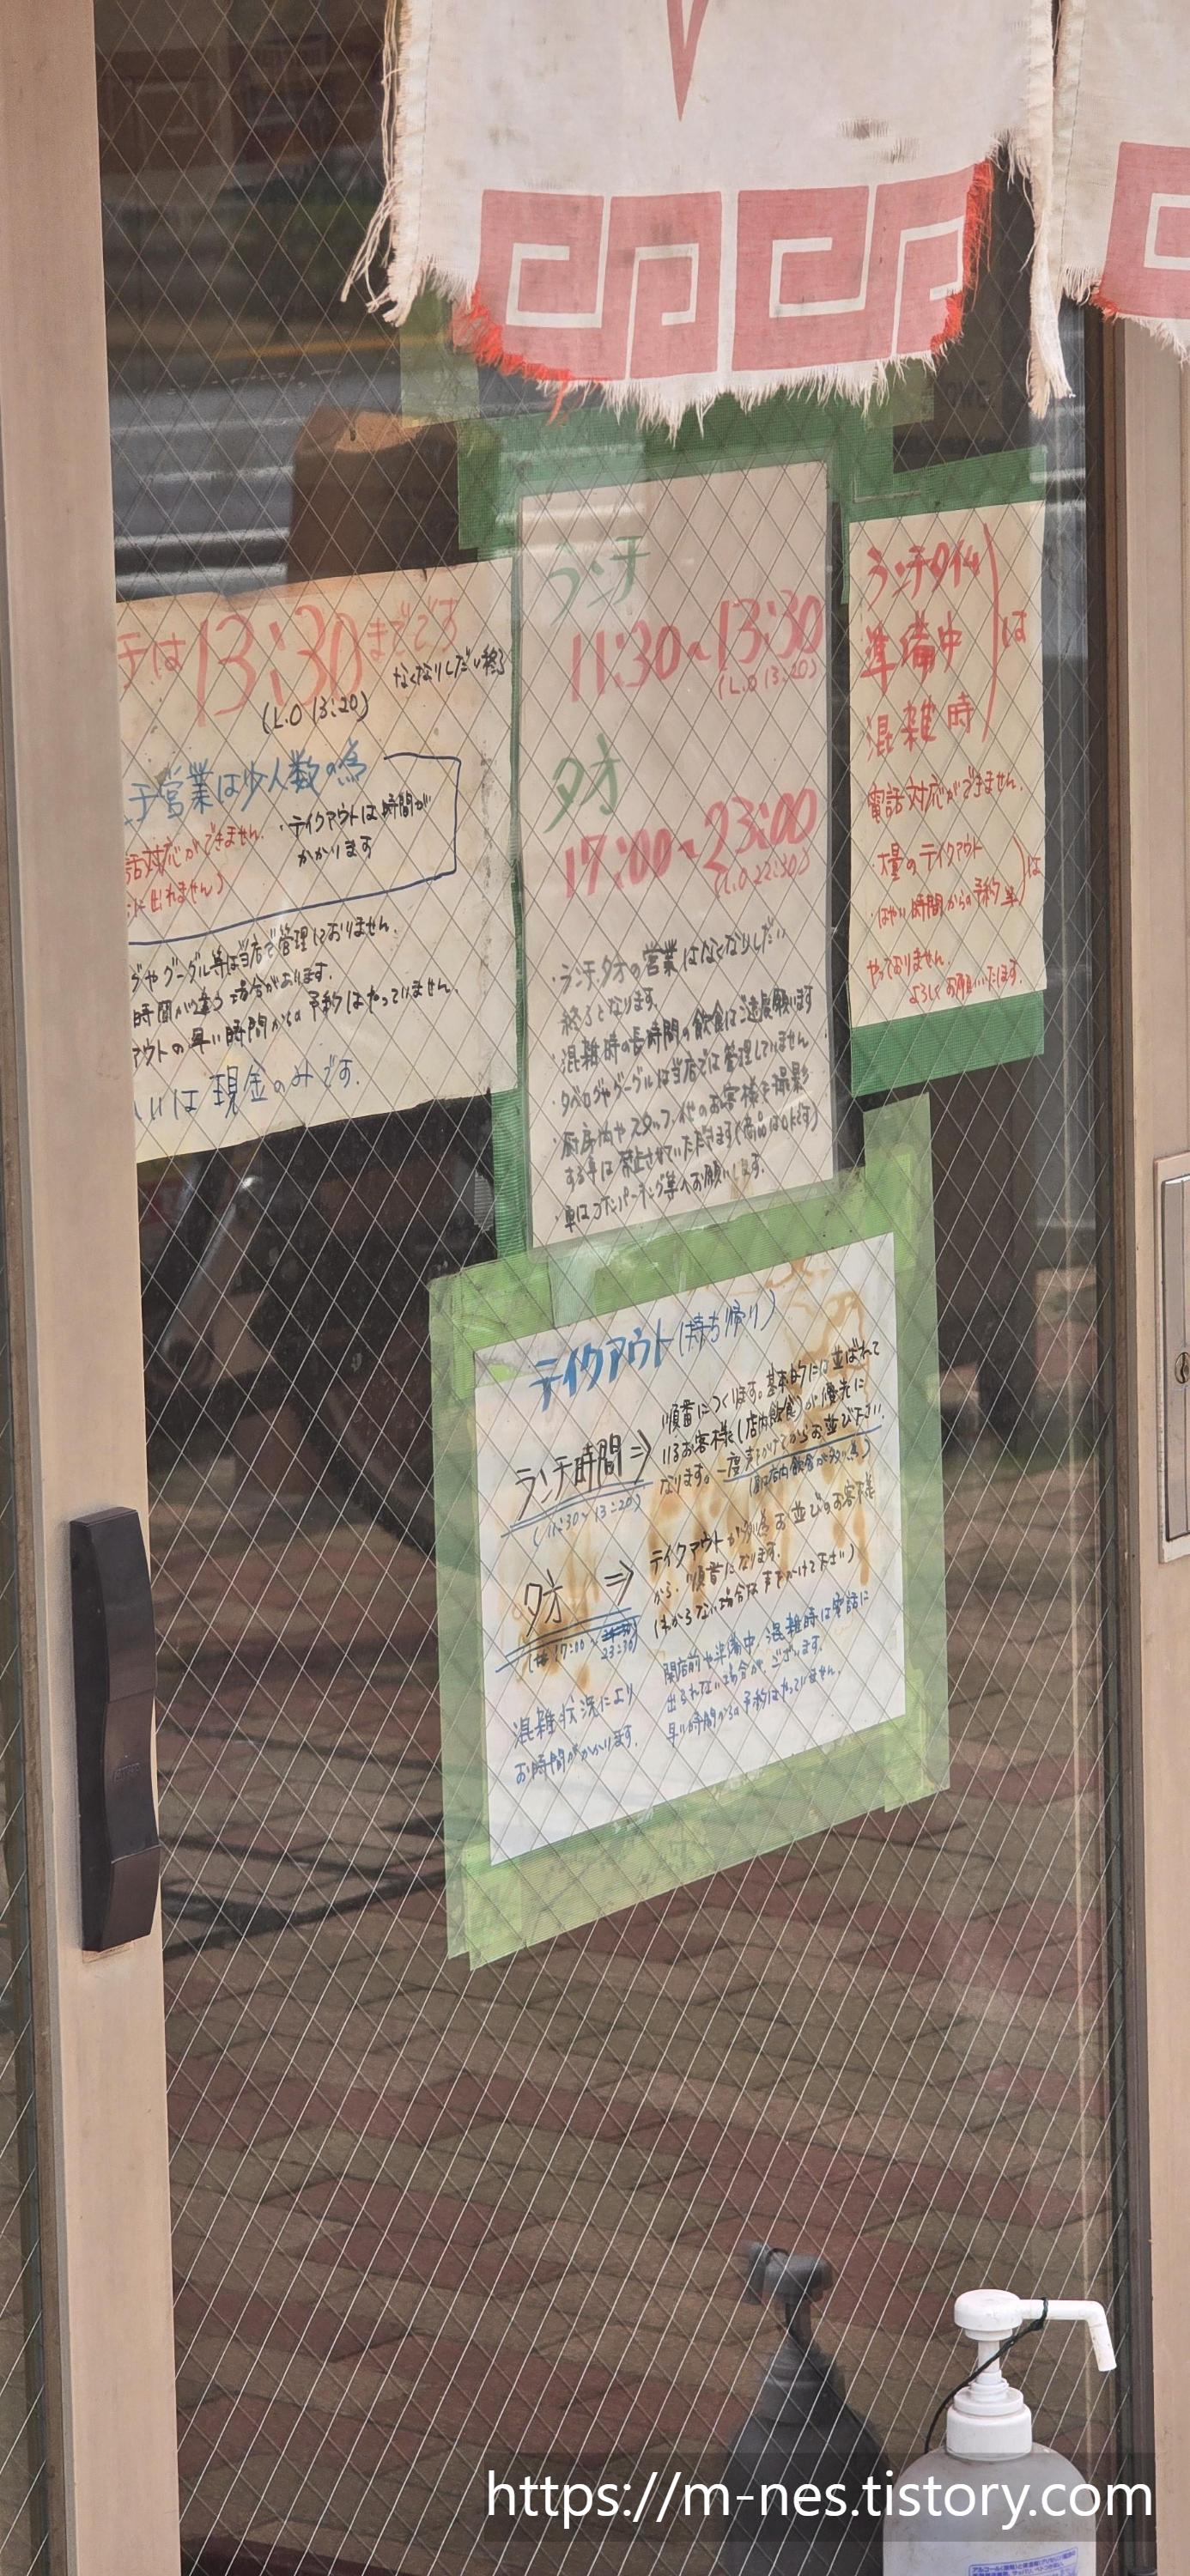 チは13:30までです
なくなりしだい終了
(L.O 13:20)
チ営業は少人数の為
話対応ができません。
に出れません)
・テイクアウトは時間が
かかります
グやグーグル等は当店で管理しておりません。
時間が違う場合があります。
アウトの早い時間からの予約はやっていません。
いは現金のみです。
ランチ
11:30~13:30
(L.O 13:20)
夕方
17:00~23:00
(L.O 22:30)
・ランチ夕方の営業はなくなりしだい
終了となります。
・混雑時の長時間の飲食はご遠慮願います
・タベログやグーグルは当店では管理していません
・厨房内やスタッフ、他のお客様を撮影
する事は禁止させていただきます(商品はOKです)
・車はコインパーキング等へお願いします。
ランチタイム
準備中
混雑時
は
電話対応ができません。
大量のテイクアウト
はやい時間からの予約等
は
やっておりません。
よろしくお願いいたします。
テイクアウト(持ち帰り)
ランチ時間⇒
(11:30~13:20)
順番につくります。基本的には並ばれて
いるお客様(店内飲食)が優先に
なります。一度声をかけてからお並び下さい。
(店内飲食が多い為)
夕方 ⇒
17:00~
23:30)
テイクアウトが多い為お並びのお客様
から、順番になります。
(わからない場合は声をかけて下さい)
混雑状況により
お時間がかかります。
開店前や準備中、混雑時は電話に
出られない場合がございます。
早い時間からの予約はやっていません。
https://m-nes.tistory.com